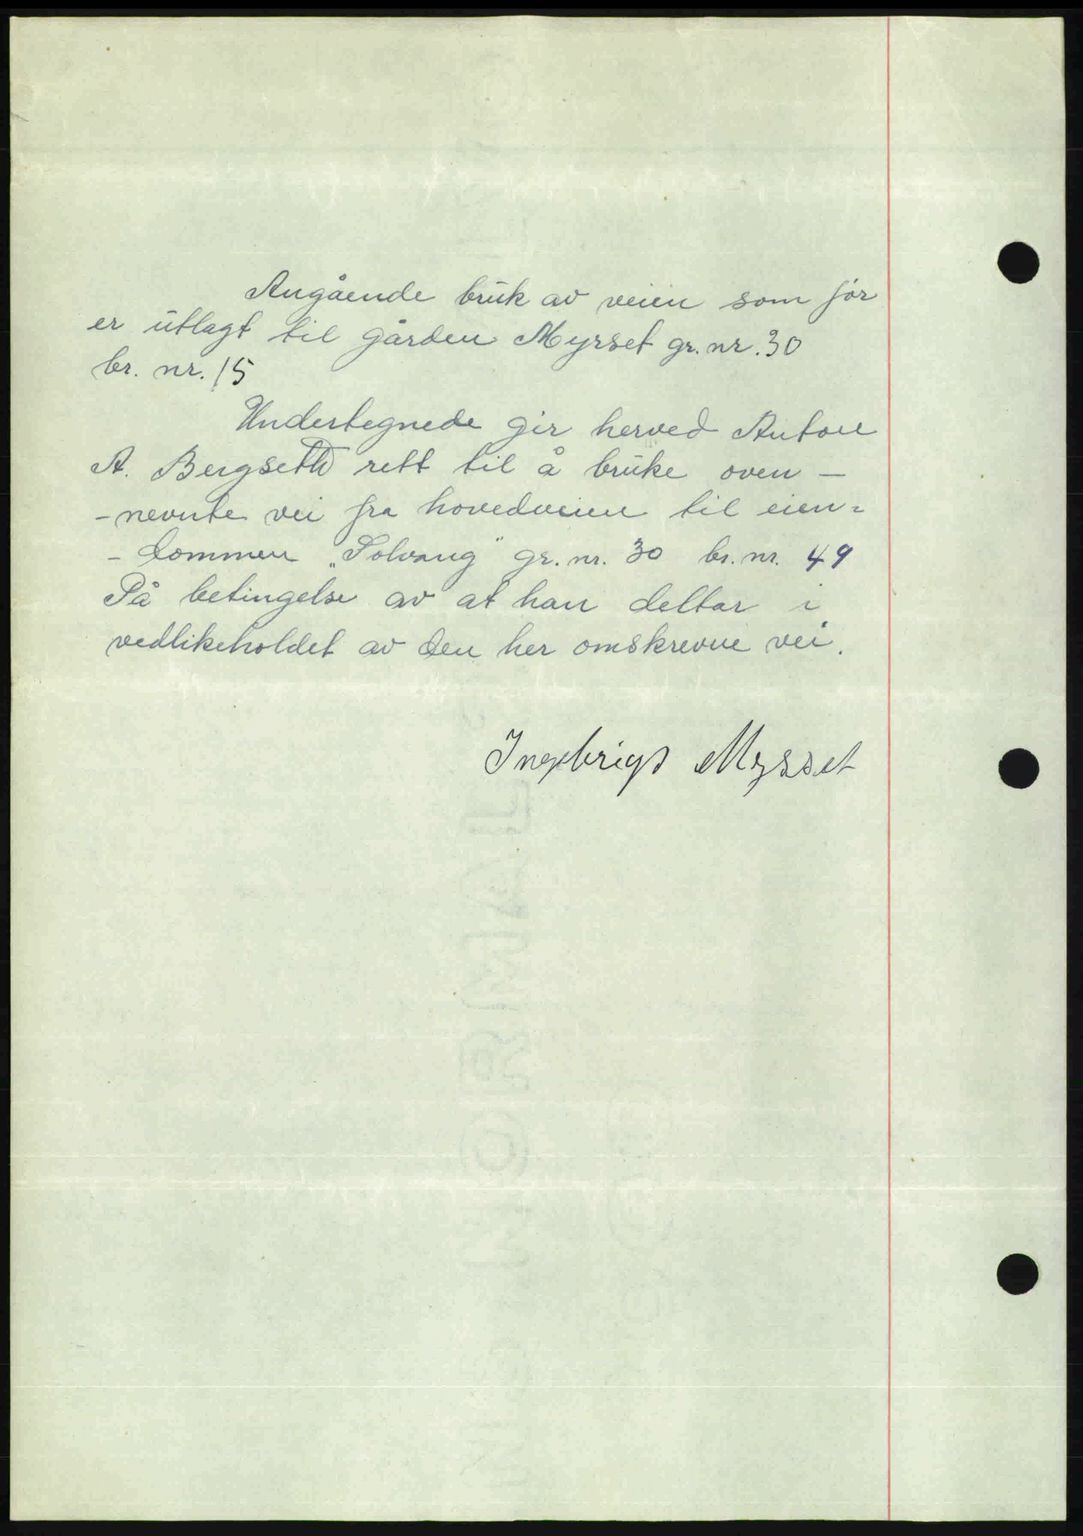 Angående bruk av veien som før
er utlagt til gården Myrset gr. nr. 30
br. nr. 15
Undertegnede gir herved Anton
A. Bergseth rett til å bruke oven -
- nevnte vei fra hovedveien til eien=
- dommen „Solvang" gr. nr. 30 br. nr. 49
På betingelse av at han deltar i
vedlikeholdet av den her omskrevne vei.
Ingebrigt Myrset
NORMAL